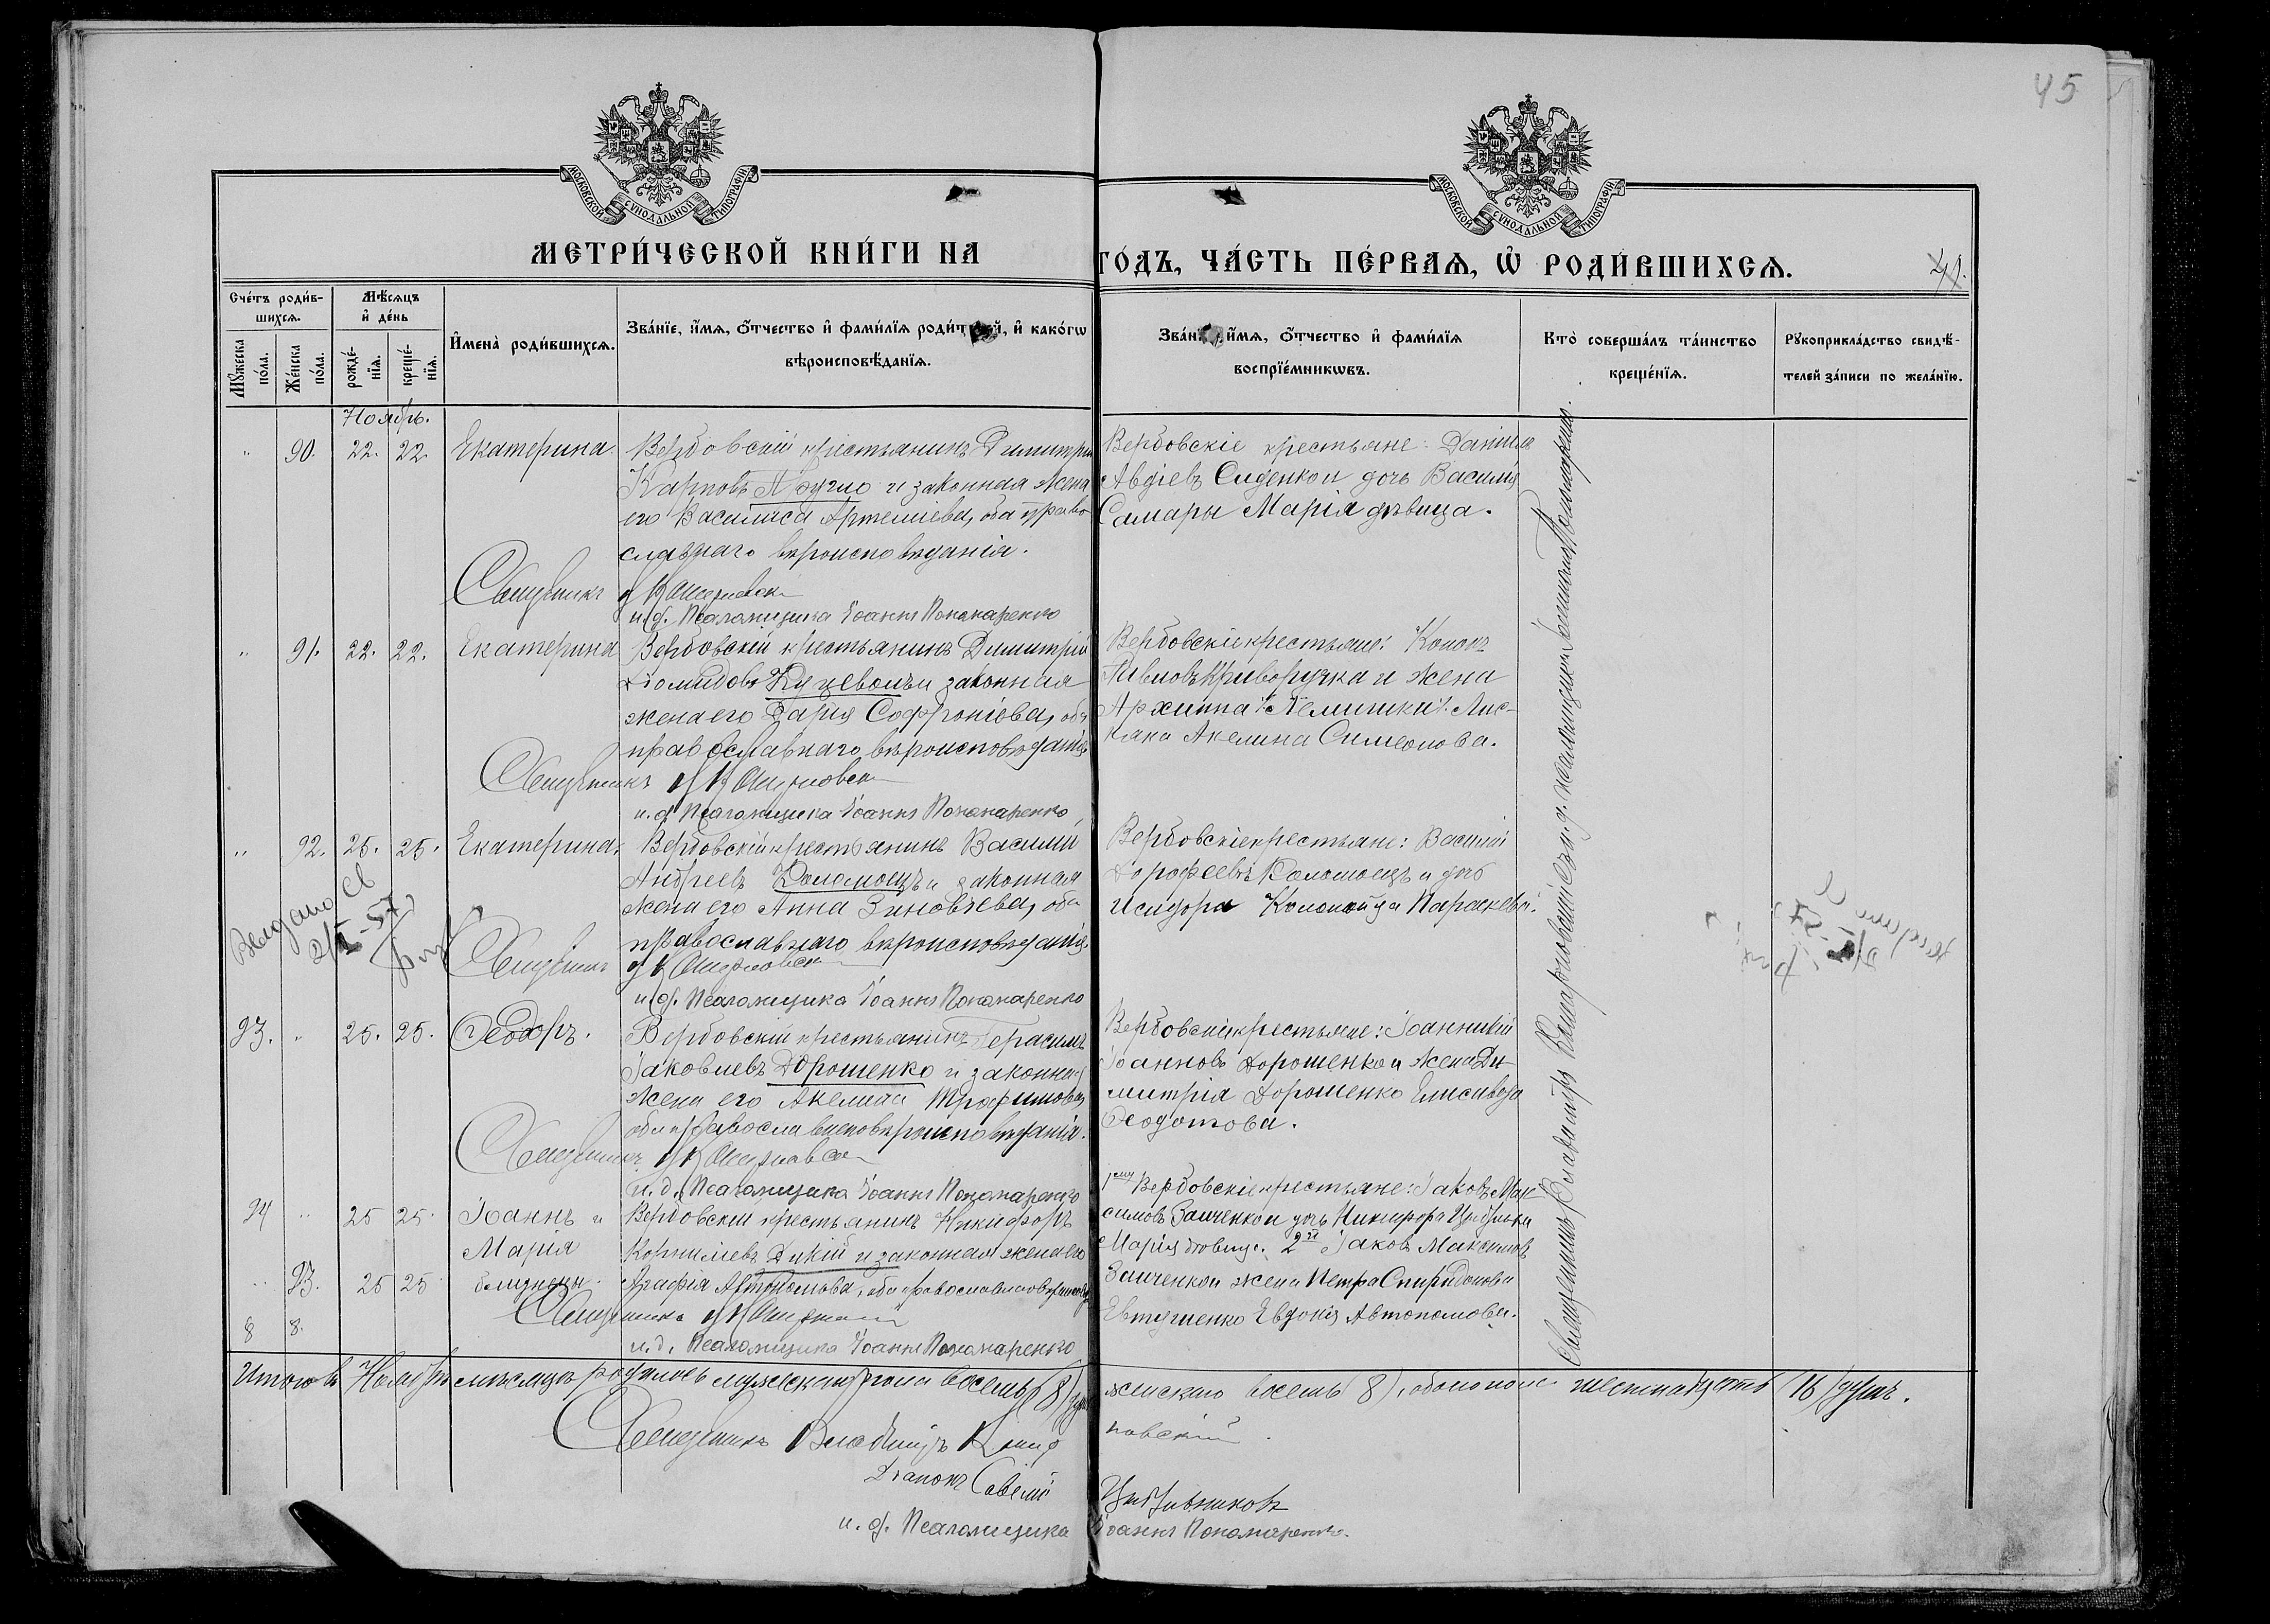 45
МОСКОВСКОЙ СѴНОДАЛЬНОЙ ТИПОГРАФІИ
МОСКОВСКОЙ СѴНОДАЛЬНОЙ ТИПОГРАФІИ
МЕТРИ́ЧЕСКОЙ КНИ́ГИ НА ГО́ДЪ, ЧА́СТЬ ПЕ́РВАѦ, Ѡ҆ РОДИ́ВШИХСѦ.
41.
Сче́тъ роди́в-
шихсѧ.
Мꙋ́жеска
по́ла.
Же́нска
по́ла.
Мѣ́сѧцъ
и҆ де́нь
рожде́-
нїѧ.
креще́-
нїѧ.
И҆мена̀ роди́вшихсѧ.
Зва́нїе, и҆́мѧ, ѻ҆́тчество и҆ фами́лїѧ роди́т й, и҆ како́гѡ
вѣроисповѣ́данїѧ.
Зва́н и҆́мѧ, ѻ҆́тчество и҆ фами́лїѧ
воспрїе́мникѡвъ.
Кто̀ соверша́лъ та́инство
креще́нїѧ.
Рꙋкоприкла́дство свидѣ́-
телей за́писи по жела́нїю.
Ноябрь.
" 90. 22. 22. Екатерина.
Вербовскій крестьянинъ Димитрій
Карповъ и законная жена
его Василиса Артеміева, оба право
славнаго вѣроисповѣданія.
Священникъ
и.д. Псаломщика Іоаннъ Пономаренко
Вербовскіе крестьяне: Даніилъ
Авдіевъ Сиденко и дочь Василія
Самары Марія дѣвица.
" 91. 22. 22. Екатерина
Вербовскій крестьянинъ Димитрій
Діомидовъ и законная
жена его Дарія Софроніева, оба
православнаго вѣроисповѣданія.
Священникъ
и.д. Псаломщика Іоаннъ Пономаренко
Вербовскіе крестьяне: Кононъ
Криворучка и жена
Архиппа Лис-
Акелина Симеонова.
" 92. 25. 25. Екатерина.
Вербовскій крестьянинъ Василій
Андреевъ Коломоецъ и законная
жена его Анна Зиновіева, оба
православнаго вѣроисповѣданія.
Священникъ
и.д. Псаломщика Іоаннъ Пономаренко
Вербовскіе крестьяне: Василій
Дорофеевъ Коломоецъ и дочь
Исидора Коломойца Параскева.
Видано Св
93. " 25. 25. Ѳеодоръ.
Вербовскій крестьянинъ Герасимъ
Іаковлевъ Дорошенко и законная
жена его Акелина Трофимова,
оба православнаго вѣроисповѣданія.
Священникъ
и.д. Псаломщика Іоаннъ Пономаренко
Вербовскіе крестьяне: Іоанникій
Іоанновъ Дорошенко и жена Ди-
митрія Дорошенко Елисавета
Ѳеодотова.
94 " 25 25. Іоаннъ и
Марія
" 93. 25 25 близнецы.
8 8.
Вербовскій крестьянинъ Никифоръ
Корниліевъ Дикій и законная жена его
Агафія Автономова, оба православнаго
Священникъ
и.д. Псаломщика Іоаннъ Пономаренко
1му Вербовскіе крестьяне: Іаковъ Мак-
симовъ Заиченко и дочь Никифора
Марія дѣвица. 2й Іаковъ Максимовъ
Заиченко и жена Петра Спиридонова
Евтушенко Евдокія Автономова.
Священникъ Владиміръ съ и.д. псаломщика Іоанномъ Пономаренко.
Итого въ Ноябрѣ мѣсяцѣ родилось мужскаго пола восемь (8), женскаго восемь (8), обоего пола шестнадцать (16) душъ.
Священникъ Владиміръ
Діаконъ Савелій
и.д. Псаломщика Іоаннъ Пономаренко.